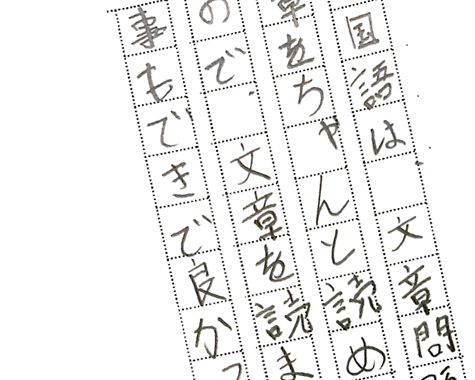 国語は 文章問
章をちゃんと読め
ので、文章を読ま
事もできで良かっ